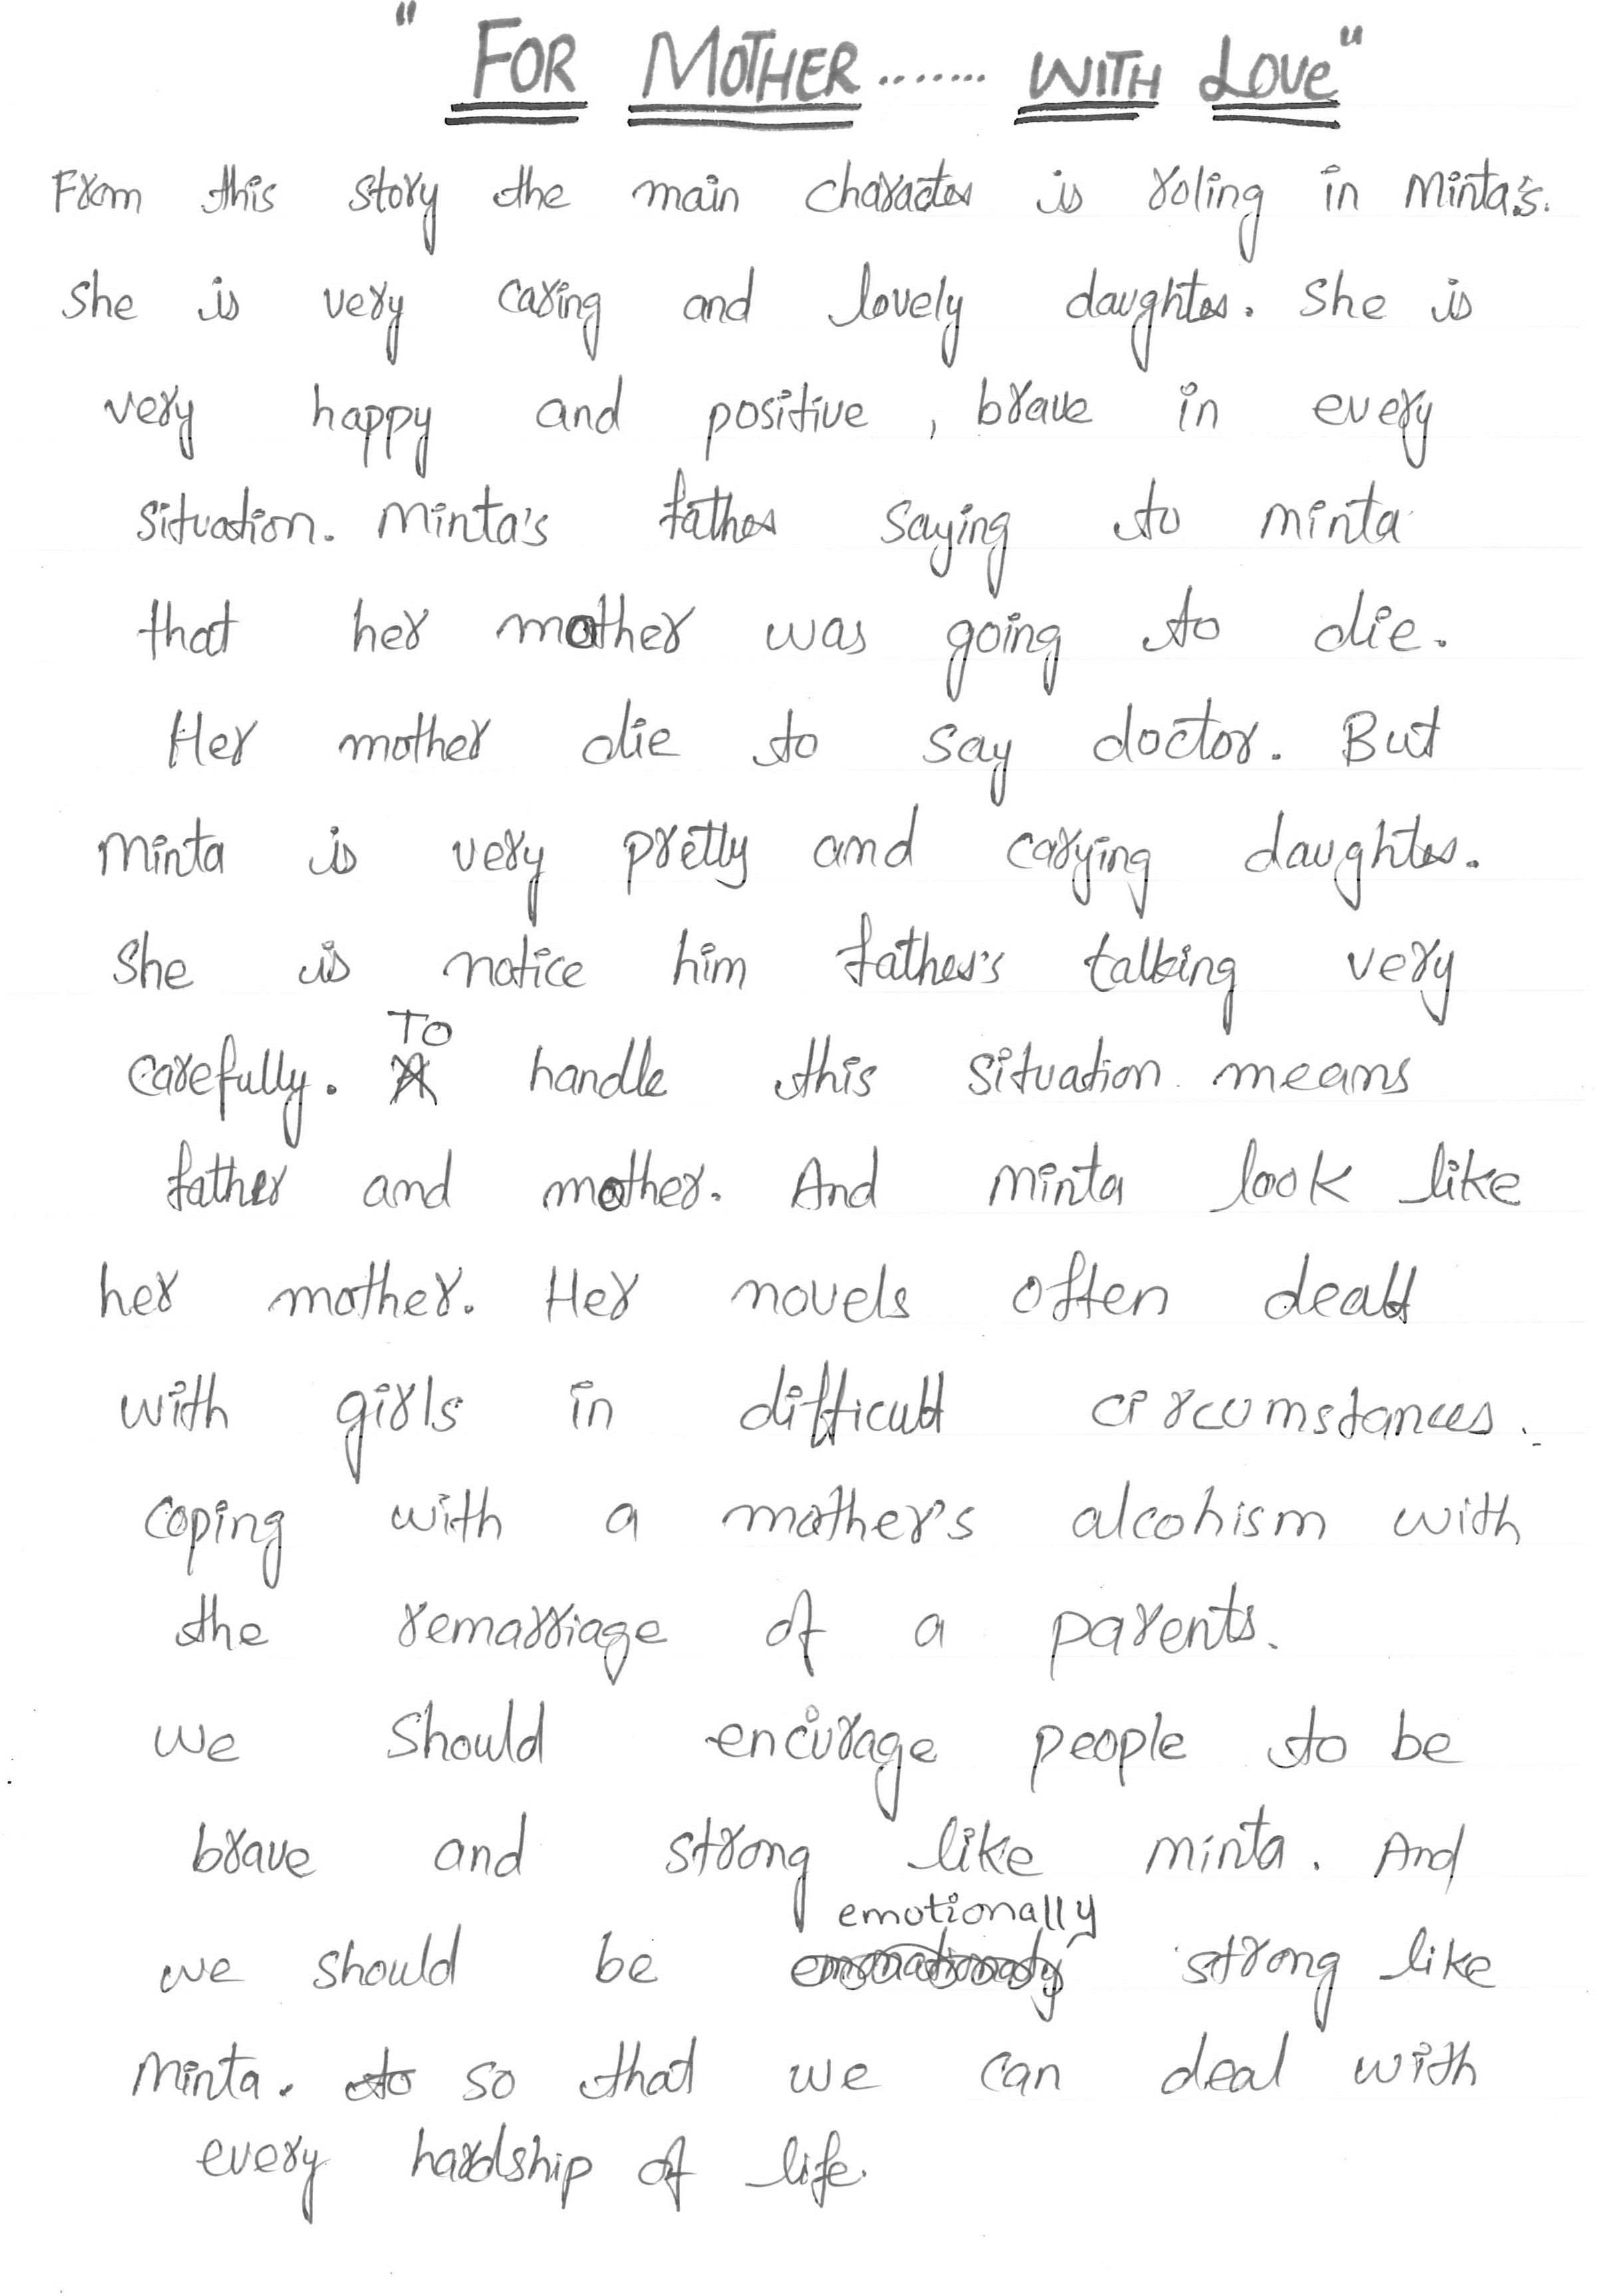 "FOR MOTHER ....... WITH LOVE"
From this story the main character is roling in Minta's.
She is very caring and lovely daughter. She is
very happy and positive, brave in every
situation. Minta's father saying to minta
that her mother was going to die.
Her mother die to say doctor. But
Minta is very pretty and carying daughter.
She is notice him father's talking very
carefully. To handle this situation means
father and mother. And minta look like
her mother. Her novels often dealt
with girls in difficult circumstances.
coping with a mother's alcohism with
the remarriage of a parents.
we should encurage people to be
brave and strong like minta. And
we should be emotionally strong like
Minta. so that we can deal with
every hardship of life.